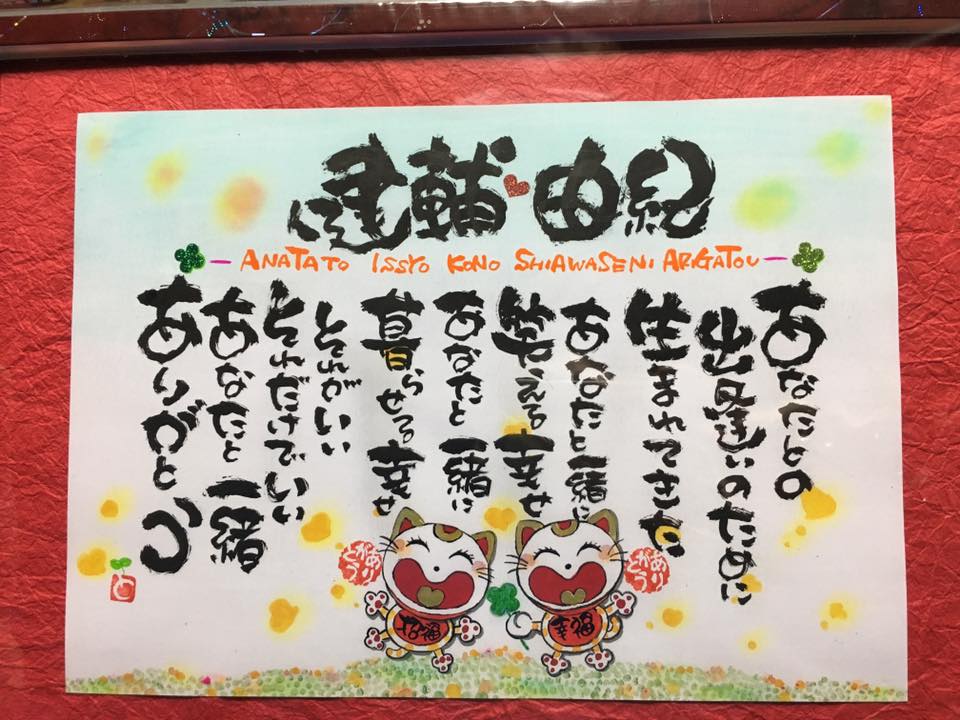 健輔♥由紀
ANATATO ISSYO KONO SHIAWASENI ARIGATOU
あなたとの
出逢いのために
生まれてきた
あなたと一緒に
笑える幸せ
あなたと一緒に
暮らせる幸せ
それがいい
それだけでいい
あなたと一緒
ありがとう
ありがとう
招福
幸福
ありがとう